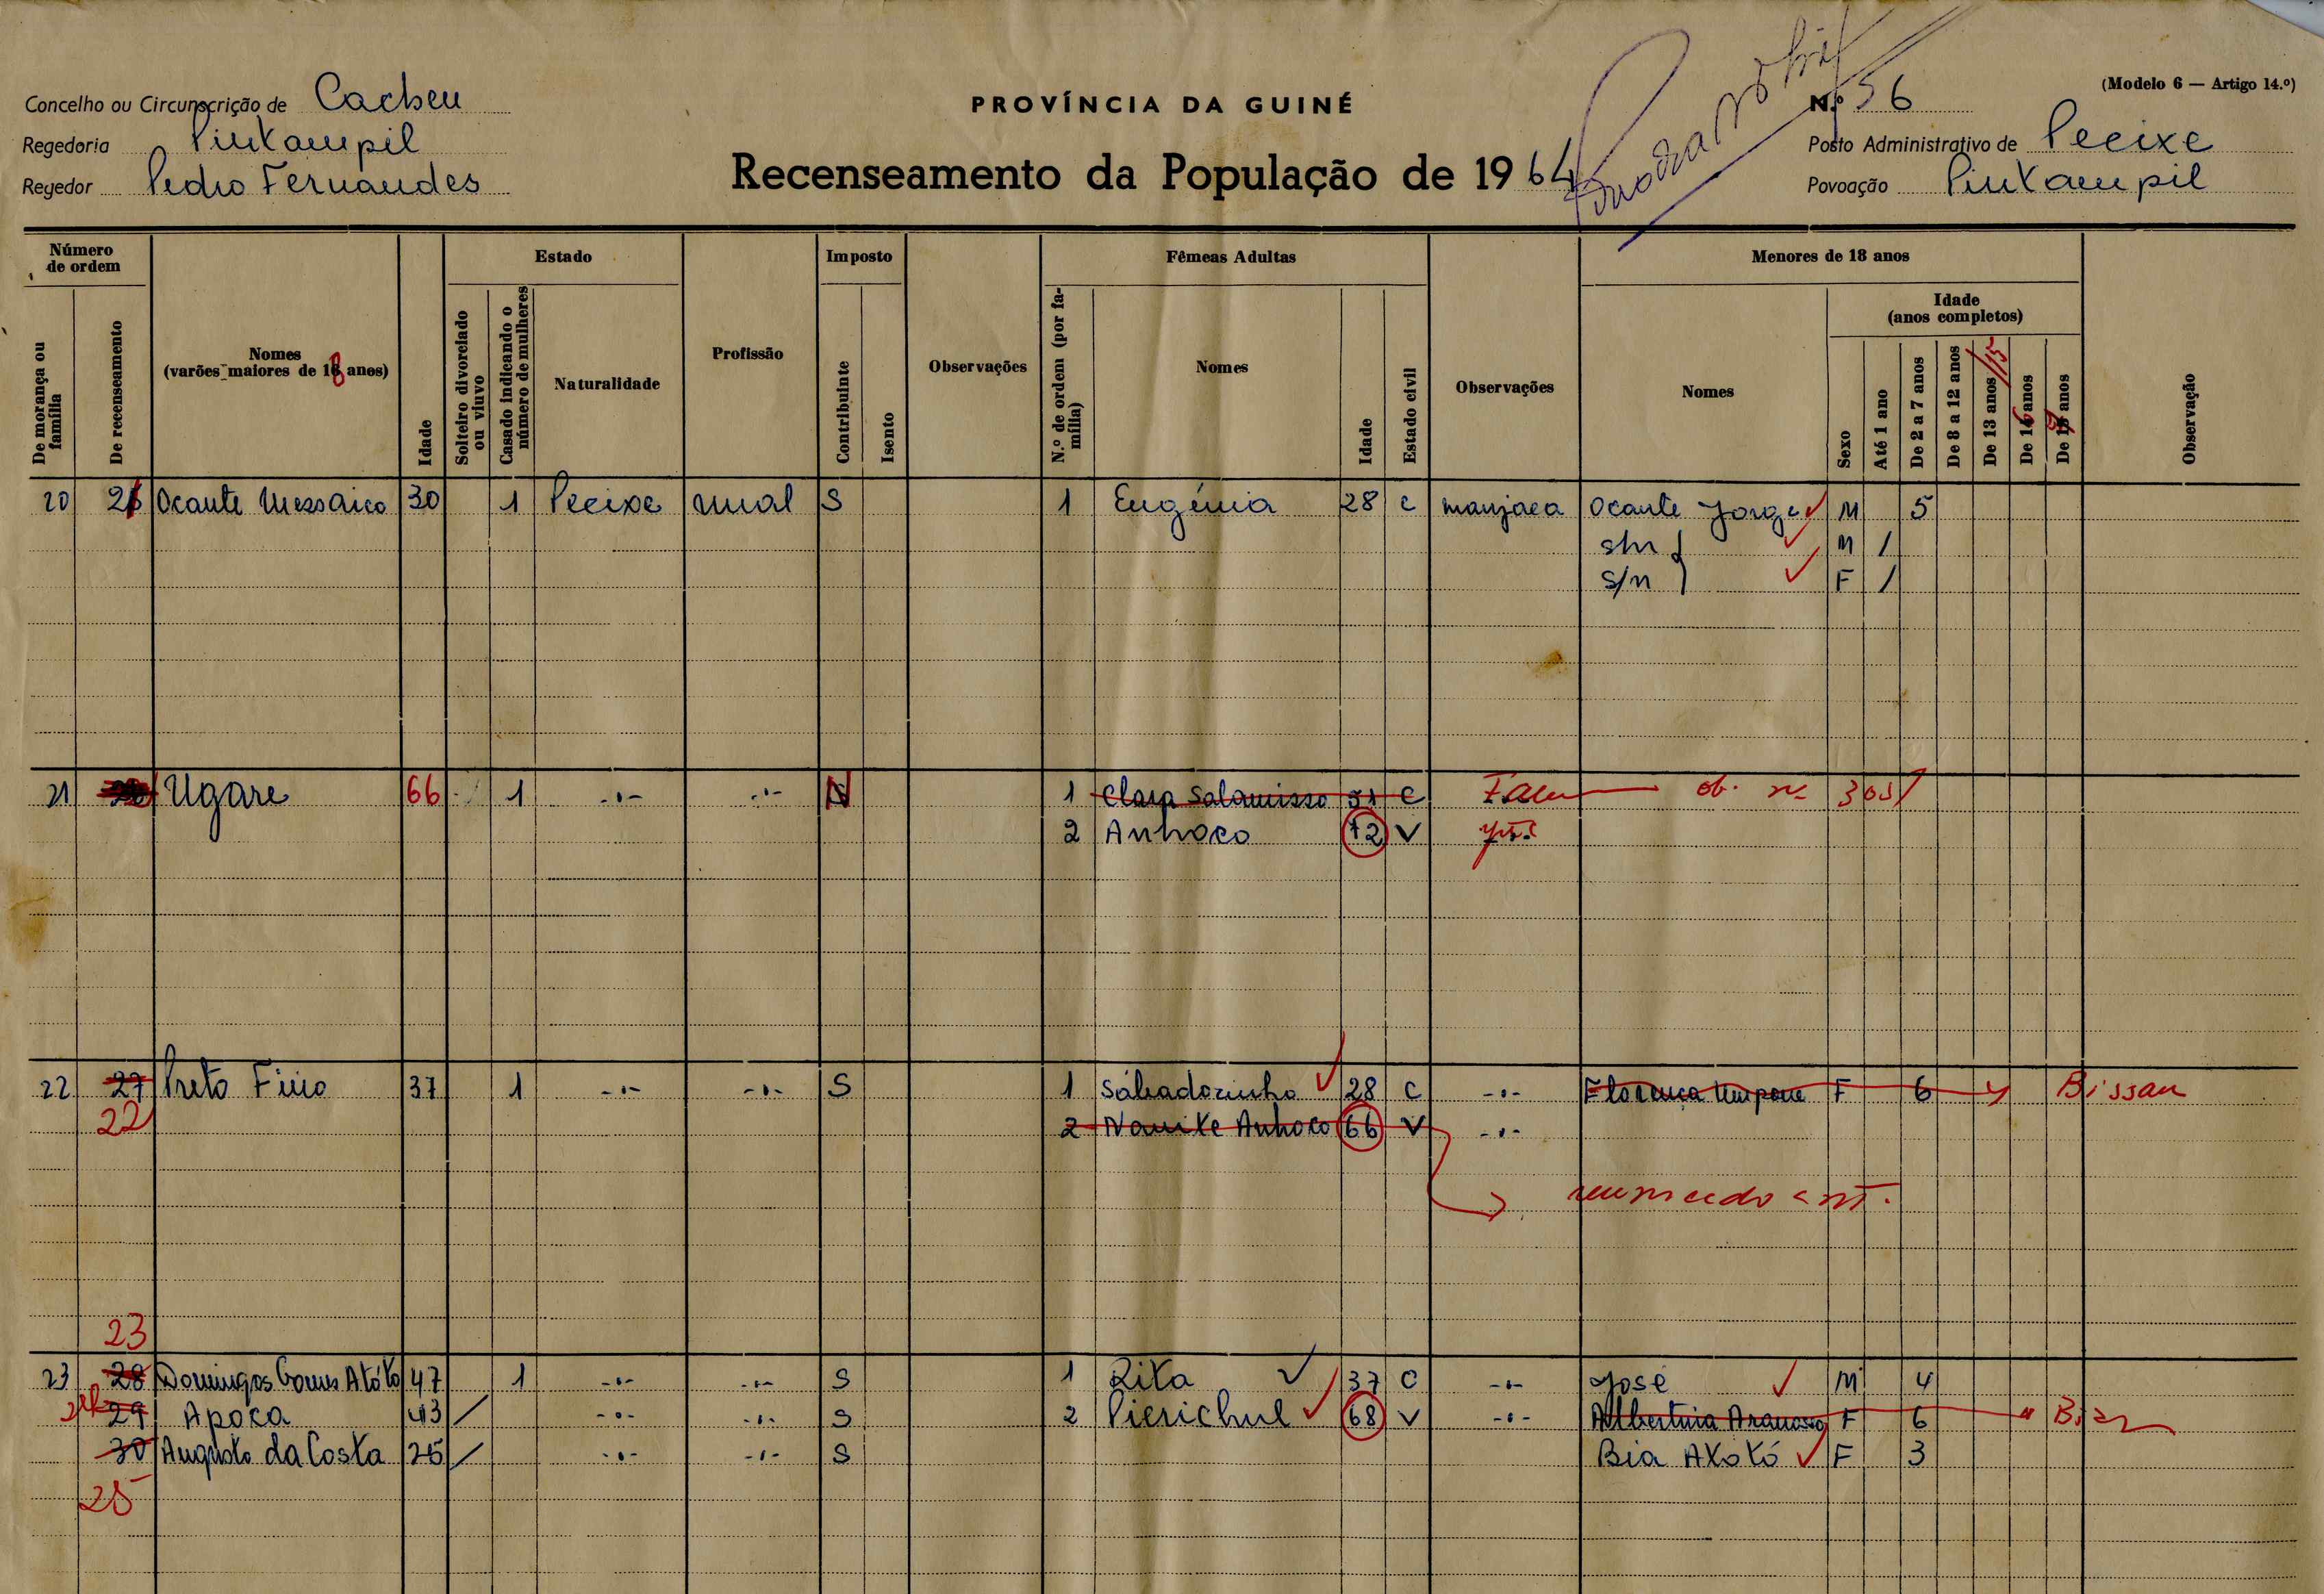 (Modelo 6 — Artigo 14.º)
Concelho ou Circunscrição de Cacheu
PROVÍNCIA DA GUINÉ
N.º 56
Regedoria Pintampil
Posto Administrativo de Pecixe
Regedor Pedro Fernandes
Recenseamento da População de 1964
Povoação Pintampil
Número de ordem
Estado
Imposto
Fêmeas Adultas
Menores de 18 anos
De morança ou família
De recenseamento
Nomes (varões maiores de 18 anos)
Idade
Solteiro divorciado ou viuvo
Casado indicando o número de mulheres
Naturalidade
Profissão
Contribuinte
Isento
Observações
N.º de ordem (por família)
Nomes
Idade
Estado civil
Observações
Nomes
Sexo
Idade (anos completos)
Até 1 ano
De 2 a 7 anos
De 8 a 12 anos
De 13 anos /15
De 16 anos
De anos
Observação
20 Ocante 30 1 Pecixe rural S 1 Eugénia 28 C manjaca Ocante Jorge M 5
s/n M /
s/n F /
21 Ugare 66 1 -.- -.- N 1 Clara Salamisso 51 C
2 Anhoco 72 V
22 27 Preto Fino 37 1 -.- -.- S 1 Sábadozinho 28 C -.- F 6 Bissau
22 2 Nanike Anhoco 66 V -.-
23
23 28 Domingos Gomes Atótó 47 1 -.- -.- S 1 Rita 37 C -.- José M 4
24 29 Apoca 43 / -.- -.- S 2 Pierichul 68 V -.- F 6
30 Augusto da Costa 25 / -.- -.- S Bia Atotó F 3
25